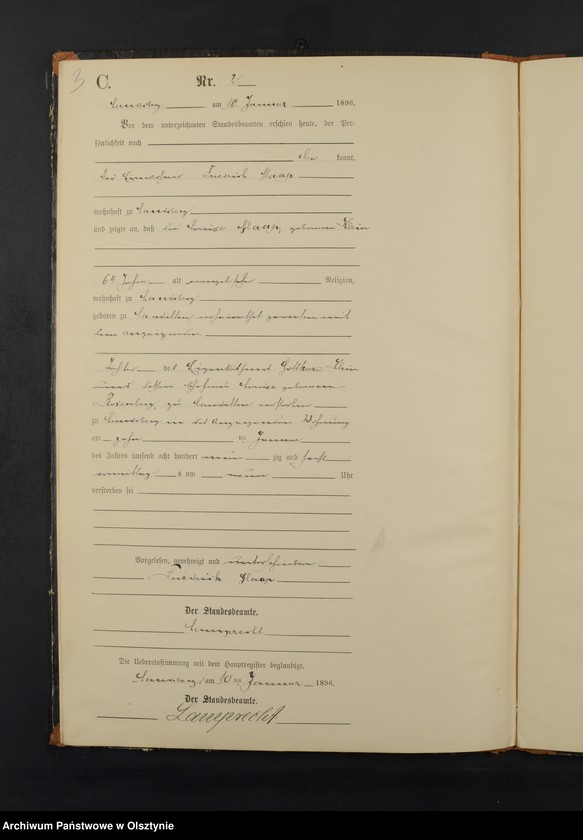 3
C.
Nr. 2
Landsberg am 10. Januar 1896.
Vor dem unterzeichneten Standesbeamten erschien heute, der Per-
sönlichkeit nach
kannt,
der Friedrich Klaap
wohnhaft zu Landsberg
und zeigte an, daß Louise Klaap, geborene Klein
64 Jahre alt evangelischer Religion,
wohnhaft zu Landsberg
geboren zu verheirathet gewesen mit
dem Anzeigenden
Tochter des Eigenkäthners Klein
und dessen Ehefrau Louise geborene
Rosenberg, zu verstorben
zu Landsberg in des Anzeigenden Wohnung
am zehn ten Januar
des Jahres tausend acht hundert neun zig und sechs
Vormittags um neun Uhr
verstorben sei
Vorgelesen, genehmigt und unterschrieben
Friedrich Klaap
Der Standesbeamte.
Lamprecht
Die Uebereinstimmung mit dem Hauptregister beglaubigt.
Landsberg, am 10 ten Januar 1896.
Der Standesbeamte.
Lamprecht
Archiwum Państwowe w Olsztynie